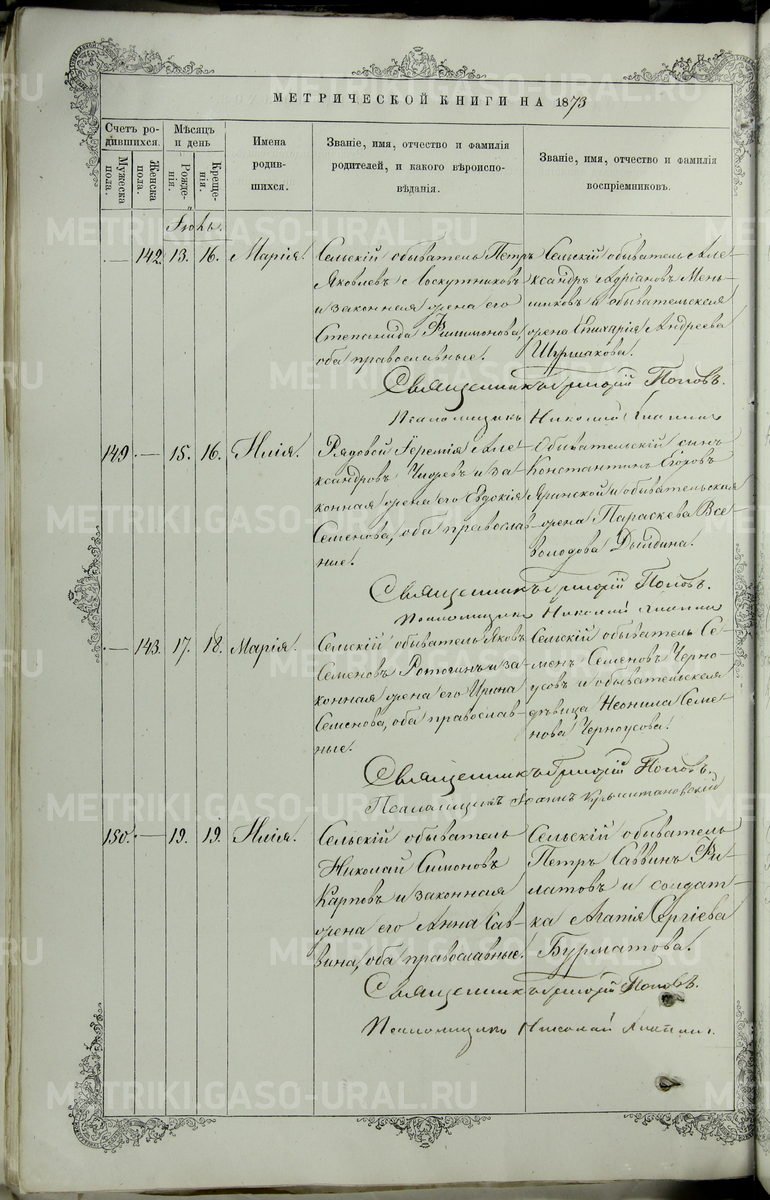 МЕТРИЧЕСКОЙ КНИГИ НА 1873
Счетъ ро-
дившихся.
Мужеска
пола.
Женска
пола.
Мѣсяцъ
и день
Рожде-
нія.
Креще-
нія.
Имена
родив-
шихся.
Званіе, имя, отчество и фамилія
родителей, и какого вѣроиспо-
вѣданія.
Званіе, имя, отчество и фамилія
воспріемниковъ.
Іюль.
142. 13. 16. Марія.
Сельскій обыватель Петръ
Яковлев
и законная жена его
Степанида Филимонова,
оба православные.
Сельскій обыватель Але-
ксандръ Адріановъ Мень-
шиковъ и обывательская
жена Андреева
Священникъ Григорій Поповъ.
Псаломщикъ Николай
149. 15. 16. Илія.
Рядовой Іеремія Але-
ксандровъ и за-
конная жена его Евдокія
Семенова, оба православ-
ные.
Обывательскій сынъ
Константинъ
и обывательская
жена Параскева Все-
володова
Священникъ Григорій Поповъ.
Псаломщикъ Николай
143. 17. 18. Марія.
Сельскій обыватель Яковъ
Семеновъ и за-
конная жена его Ирина
Семенова, оба православ-
ные.
Сельскій обыватель Се-
менъ Семеновъ Черно-
усовъ и обывательская
дѣвица Неонила Семе-
нова Черноусова.
Священникъ Григорій Поповъ.
Псаломщикъ Іоаннъ
150. 19. 19. Илія.
Сельскій обыватель
Николай Симоновъ
Карповъ и законная
жена его Анна Сав-
вина, оба православные.
Сельскій обыватель
Петръ Саввинъ Фи-
латовъ и солдат-
ка Агапія Сергіева
Бурматова.
Священникъ Григорій Поповъ.
Псаломщикъ Николай
METRIKI.GASO-URAL.RU